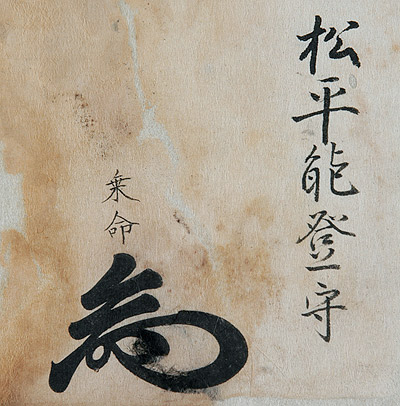 松平能登守
乗命